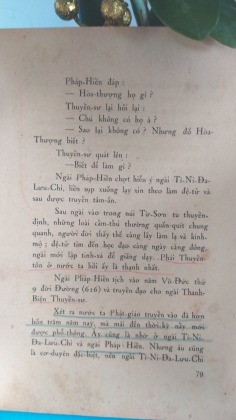 Pháp-Hiền đáp :
— Hòa-thượng họ gì ?
Thuyền-sư lại hỏi lại :
— Chú không có họ à ?
— Sao lại không có ? Nhưng đố Hòa-
Thượng biết ?
Thuyền-sư quát lên :
—Biết để làm gì ?
Ngài Pháp-Hiền chợt hiểu ý ngài Ti-Ni-Đa-
Lưu-Chi, liền sụp xuống lạy xin theo làm đệ-tử và
sau được truyền tâm-ấn.
Sau ngài vào trong núi Từ-Sơn tu thuyền-
định, những loài cầm-thú thường quấn-quít chung
quanh, người đời thấy thế càng lấy làm lạ và kính-
mộ ; đệ-tử tìm đến học đạo càng ngày càng đông,
ngài mới lập tinh-xá để giảng dạy. Phái Thuyền-
tôn ở nước ta hồi ấy là thạnh nhất.
Ngài Pháp-Hiền tịch vào năm Võ-Đức thứ
9 đời Đường (616) và truyền đạo cho ngài Thanh-
Biện Thuyền-sư.
Xét ra nước ta Phật-giáo truyền vào đã hơn
bốn trăm năm nay, mà mãi đến thời-kỳ này mới
được phổ-thông. Ấy cũng là nhờ ở ngài Ti-Ni-
Đa-Lưu-Chi và ngài Pháp-Hiền. Nhưng âu cũng
là cơ-duyên đặc-biệt, nên ngài Ti-Ni-Đa-Lưu-Chi
79